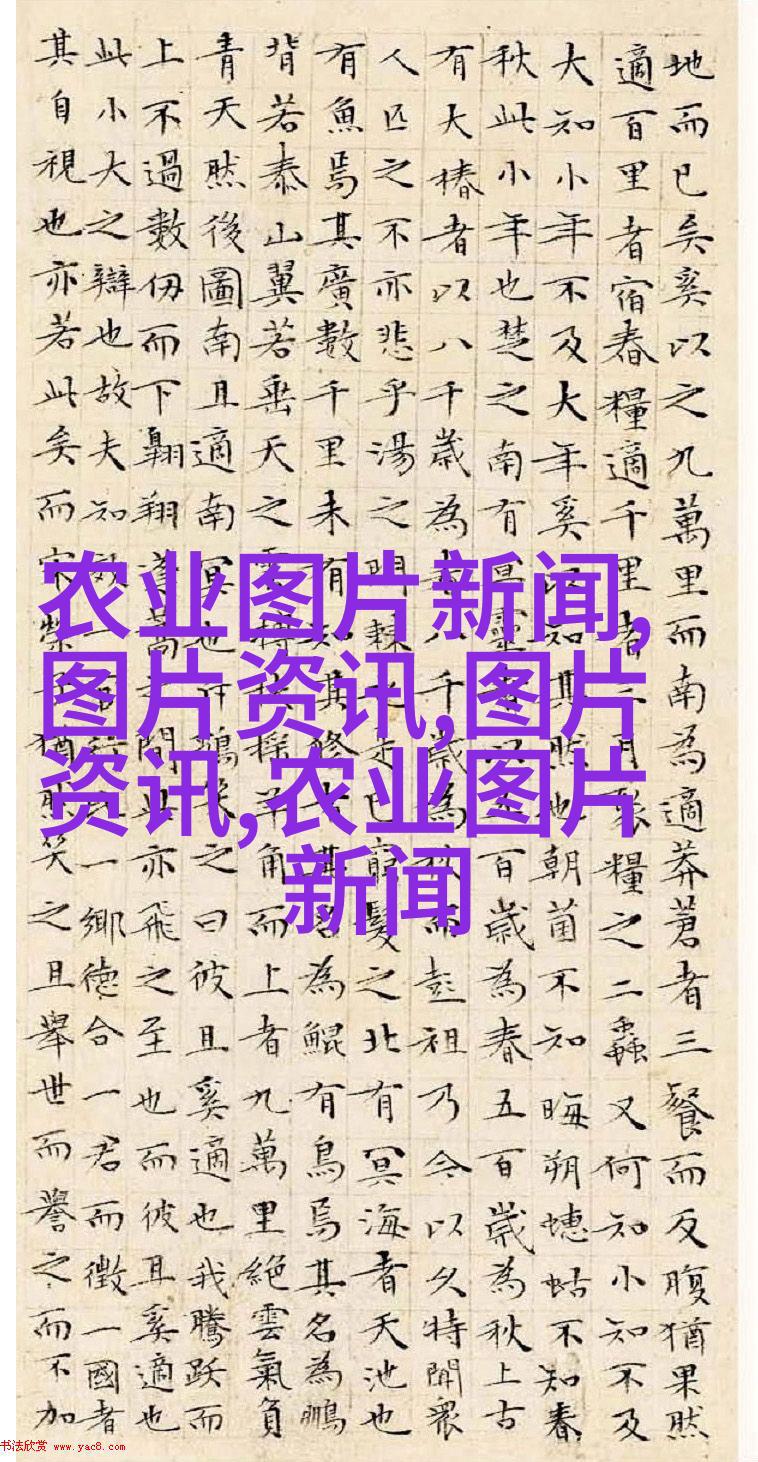 地而已矣奚以之九萬里而南為適莽蒼者三餐而反腹猶果然
適百里者宿舂糧適千里者三月聚糧之二蟲又何知小知不及
大知小年不及大年奚以知其然也朝菌不知晦朔蟪蛄不知春
秋此小年也楚之南有冥靈者以五百歲為春五百歲為秋上古
有大椿者以八千歲為春八千歲為秋而彭祖乃今以久特聞眾
人匹之不亦悲乎湯之問棘也是已窮髮之北有冥海者天池也
有魚焉其廣數千里未有知其修者其名為鯤有鳥焉其名為鵬
背若泰山翼若垂天之雲摶扶搖羊角而上者九萬里絕雲氣負
青天然後圖南且適南冥也斥鴳笑之曰彼且奚適也我騰躍而
上不過數仞而下翱翔蓬蒿之間此亦飛之至也而彼且奚適也
此小大之辯也故夫知效一官行比一鄉德合一君而徵一國者
其自視也亦若此矣而宋榮子猶然笑之且舉世而譽之而不加
农业图片新闻,
图片资讯,图片
资讯,农业图片
新闻
书法欣赏 www.yac8.com